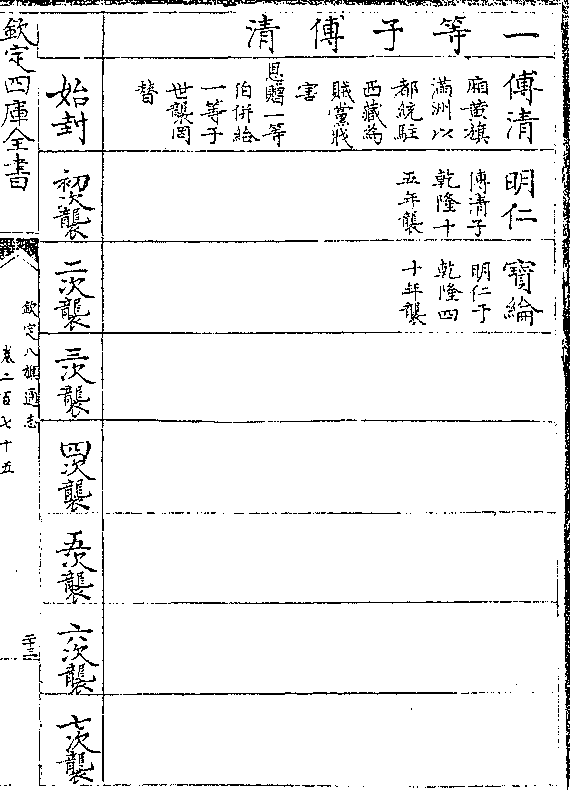 一等子傅清
始封
傅清
廂黃旗
滿洲以
都統駐
西藏為
賊黨戕
害
恩贈一等
伯併給
一等子
世襲罔
替
初次襲
明仁
傅清子
乾隆十
五年襲
二次襲
寶綸
明仁子
乾隆四
十年襲
三次襲
四次襲
五次襲
六次襲
七次襲
欽定四庫全書
欽定八旗通志
卷二百七十五